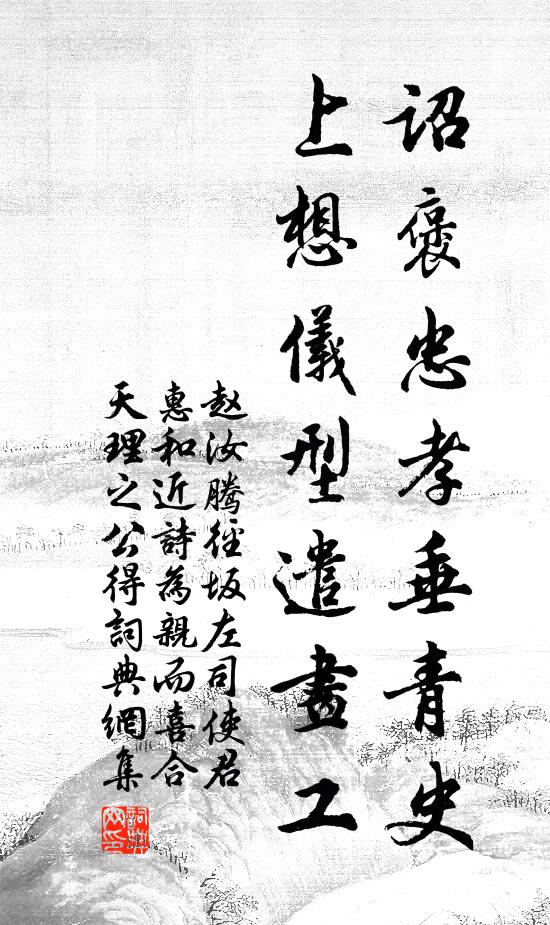 詔褒忠孝垂青史
上想儀型遣畫工
赵汝騰徑坂左司使君
惠和近詩為親而喜合
天理之公得詞典網集